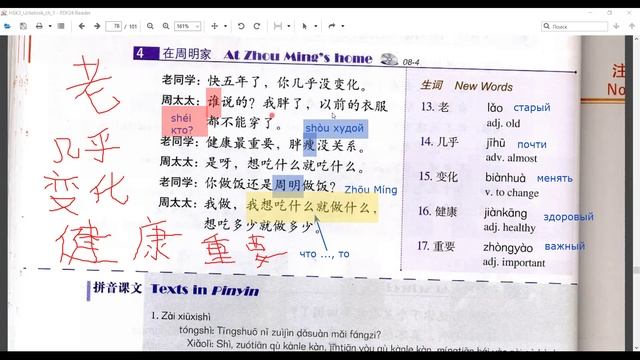 HSK3_Uchebnik_ch_1 - PDF24 Reader
78
/ 181
161%
4 在周明家 At Zhou Ming's home 08-4
老同学：快五年了，你几乎没变化。
周太太：谁说的？我胖了，以前的衣服
都不能穿了。
shéi
кто?
shòu худой
老同学：健康最重要，胖瘦没关系。
周太太：是呀，想吃什么就吃什么。
老同学：你做饭还是周明做饭？
Zhōu Míng
周太太：我做，我想吃什么就做什么，
想吃多少就做多少。
что ..., то
老
几乎
变化
健康 重要
生词 New Words
13. 老 lǎo старый
adj. old
14. 几乎 jīhū почти
adv. almost
15. 变化 biànhuà менять
v. to change
16. 健康 jiànkāng здоровый
adj. healthy
17. 重要 zhòngyào важный
adj. important
注
No
拼音课文 Texts in Pinyin
1. Zài xiūxishì
tóngshì: Tīngshuō nǐ zuìjìn dǎsuàn mǎi fángzi?
Xiǎolì: Shì, zuótiān qù kànle kàn, jīntiān yòu qù kànle kàn,